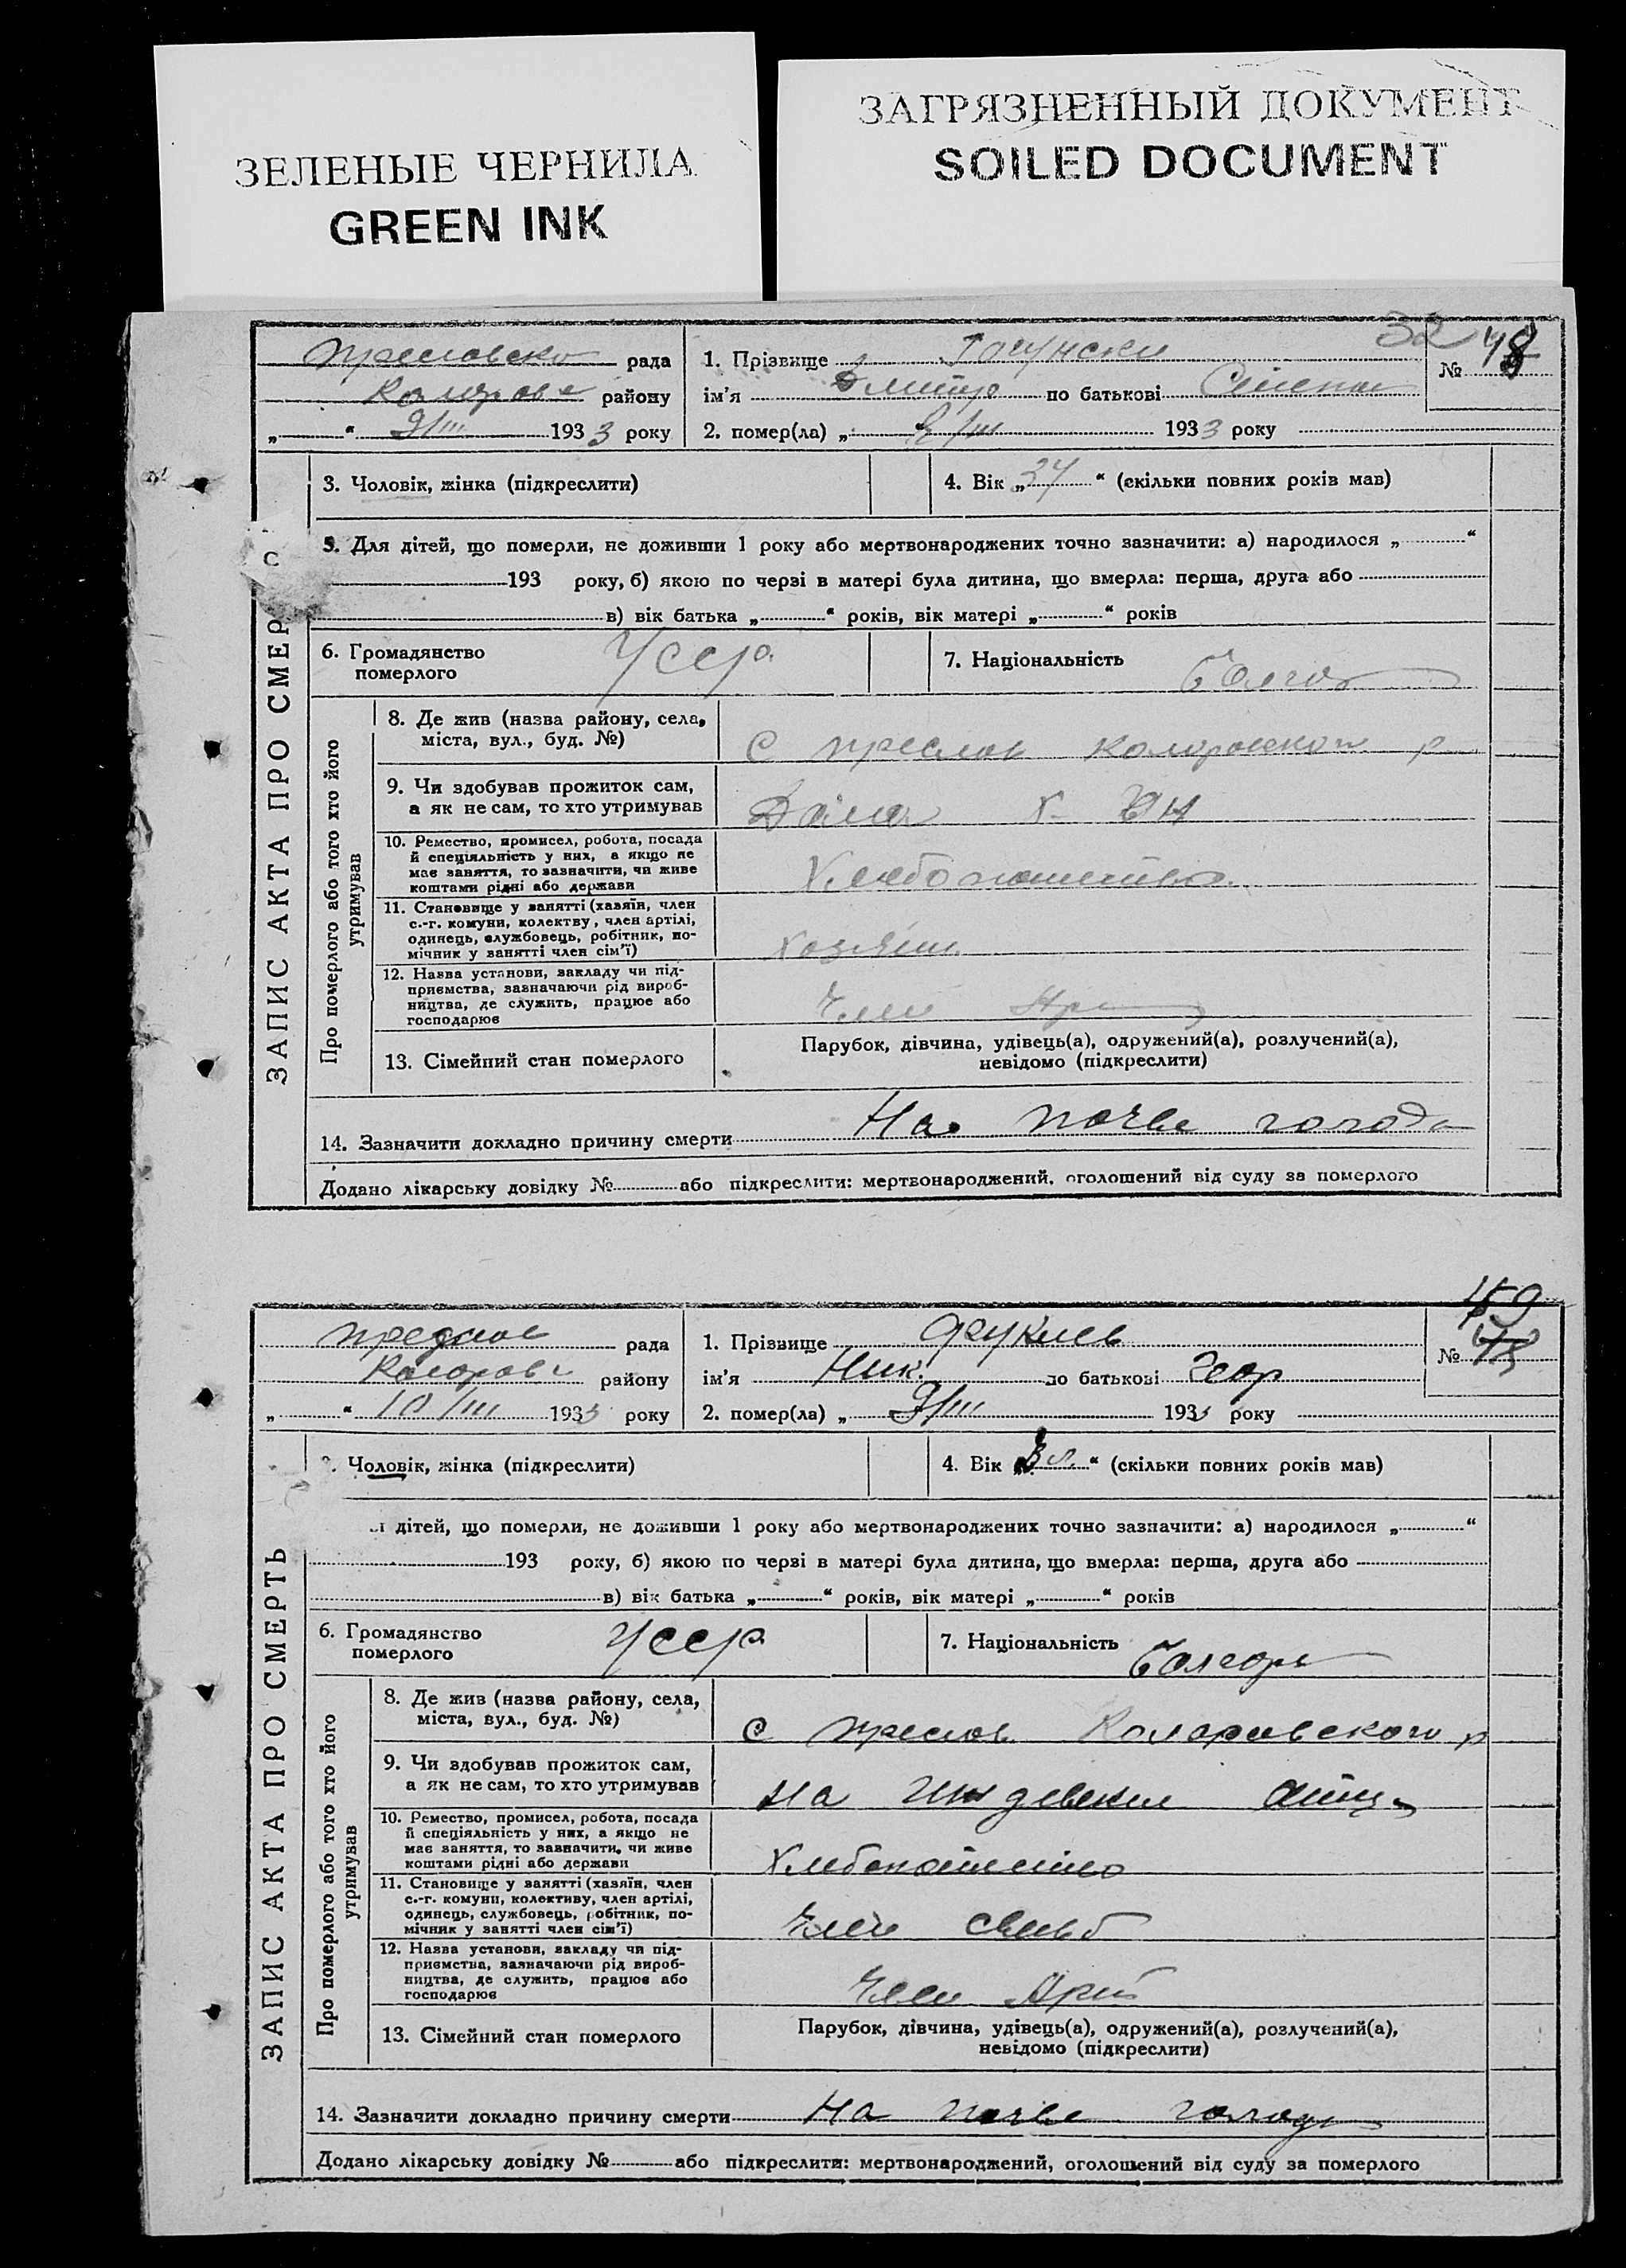 ЗЕЛЕНЫЕ ЧЕРНИЛА
GREEN INK
ЗАГРЯЗНЕННЫЙ ДОКУМЕНТ
SOILED DOCUMENT
32
ЗАПИС АКТА ПРО СМЕР
рада
района
"____" 9/III 1933 року
1. Прізвище
№ 48
ім'я Дмитро по батькові Степан
2. помер(ла) „ 8/III 1933 року
3. Чоловік, жінка (підкреслити)
4. Вік „34“ (скільки повних років мав)
5. Для дітей, що померли, не доживши 1 року або мертвонароджених точно зазначити: а) народилося „____“
193 року, б) якою по черзі в матері була дитина, що вмерла: перша, друга або
в) вік батька „____“ років, вік матері „____“ років
6. Громадянство померлого УССР
7. Національність Болгар
Про померлого або того хто його утримував
8. Де жив (назва району, села,
міста, вул., буд. №)
с Преслав Коларовского р
9. Чи здобував прожиток сам,
а як не сам, то хто утримував
10. Ремество, промисел, робота, посада
й спеціяльність у них, а якщо не
має заняття, то зазначити, чи живе
коштами рідні або держави
Хлебопашество
11. Становище у занятті (хазяїн, член
с.-г. комуни, колектву, член артілі,
одинець, службовець, робітник, по-
мічник у занятті член сім'ї)
хозяин
12. Назва установи, закладу чи під-
приємства, зазначаючи рід вироб-
ництва, де служить, працює або
господарює
Член Ар
13. Сімейний стан померлого
Парубок, дівчина, удівець(а), одружений(а), розлучений(а),
невідомо (підкреслити)
14. Зазначити докладно причину смерти На почве голода
Додано лікарську довідку №____ або підкреслити: мертвонароджений, оголошений від суду за померлого
49
ЗАПИС АКТА ПРО СМЕРТЬ
рада
району
"____" 10/III 1933 року
1. Прізвище
№ 48
ім'я Ник. по батькові Геор
2. помер(ла) „ 9/III 1933 року
Чоловік, жінка (підкреслити)
4. Вік „3 л.“ (скільки повних років мав)
дітей, що померли, не доживши 1 року або мертвонароджених точно зазначити: а) народилося „____“
193 року, б) якою по черзі в матері була дитина, що вмерла: перша, друга або
в) вік батька „____“ років, вік матері „____“ років
6. Громадянство померлого УССР
7. Національність Болгар
Про померлого або того хто його утримував
8. Де жив (назва району, села,
міста, вул., буд. №)
с Преслав Коларовского р
9. Чи здобував прожиток сам,
а як не сам, то хто утримував
на иждевении отца
10. Ремество, промисел, робота, посада
й спеціяльність у них, а якщо не
має заняття, то зазначити, чи живе
коштами рідні або держави
Хлебопашество
11. Становище у занятті (хазяїн, член
с.-г. комуни, колективу, член артілі,
одинець, службовець, робітник, по-
мічник у занятті член сім'ї)
Член
12. Назва установи, закладу чи під-
приємства, зазначаючи рід вироб-
ництва, де служить, працює або
господарює
Член Арт
13. Сімейний стан померлого
Парубок, дівчина, удівець(а), одружений(а), розлучений(а),
невідомо (підкреслити)
14. Зазначити докладно причину смерти На почве голода
Додано лікарську довідку №____ або підкреслити: мертвонароджений, оголошений від суду за померлого